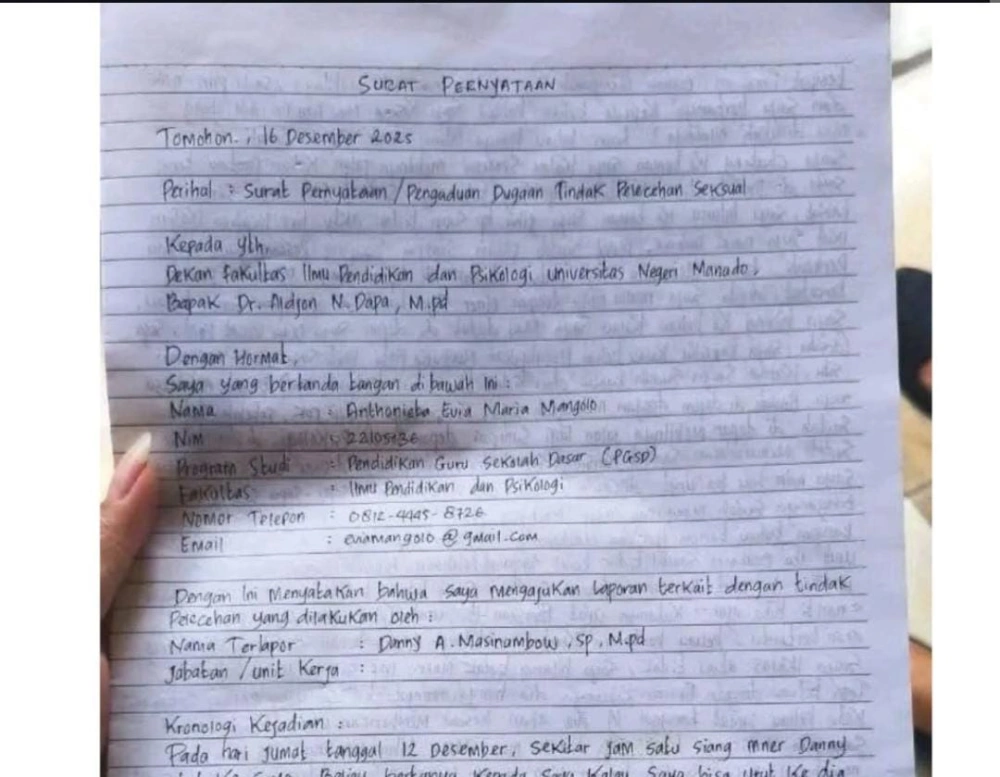 SURAT PERNYATAAN
Tomohon, 16 Desember 2025
Perihal : Surat Pernyataan / Pengaduan Dugaan Tindak Pelecehan Seksual
Kepada Yth,
Dekan Fakultas Ilmu Pendidikan dan Psikologi Universitas Negeri Manado,
Bapak Dr. Aldjon N. Dapa, M.pd
Dengan Hormat,
Saya yang bertanda tangan di bawah ini :
Nama : Anthonieta Evia Maria Mangolo
NIM
Program Studi : Pendidikan Guru Sekolah Dasar (PGSD)
Fakultas : Ilmu Pendidikan dan Psikologi
Nomor Telepon : 0812-4445-8726
Email : eviamangolo@gmail.com
Dengan ini Menyatakan bahwa saya mengajukan laporan terkait dengan tindak
Pelecehan yang dilakukan oleh :
Nama Terlapor : Danny A. Masinambow, SP, M.pd
Jabatan / unit Kerja :
Kronologi Kejadian :
Pada hari Jumat tanggal 12 Desember, sekitar jam satu siang mner Danny
saya kalau saya bisa urut ke dia